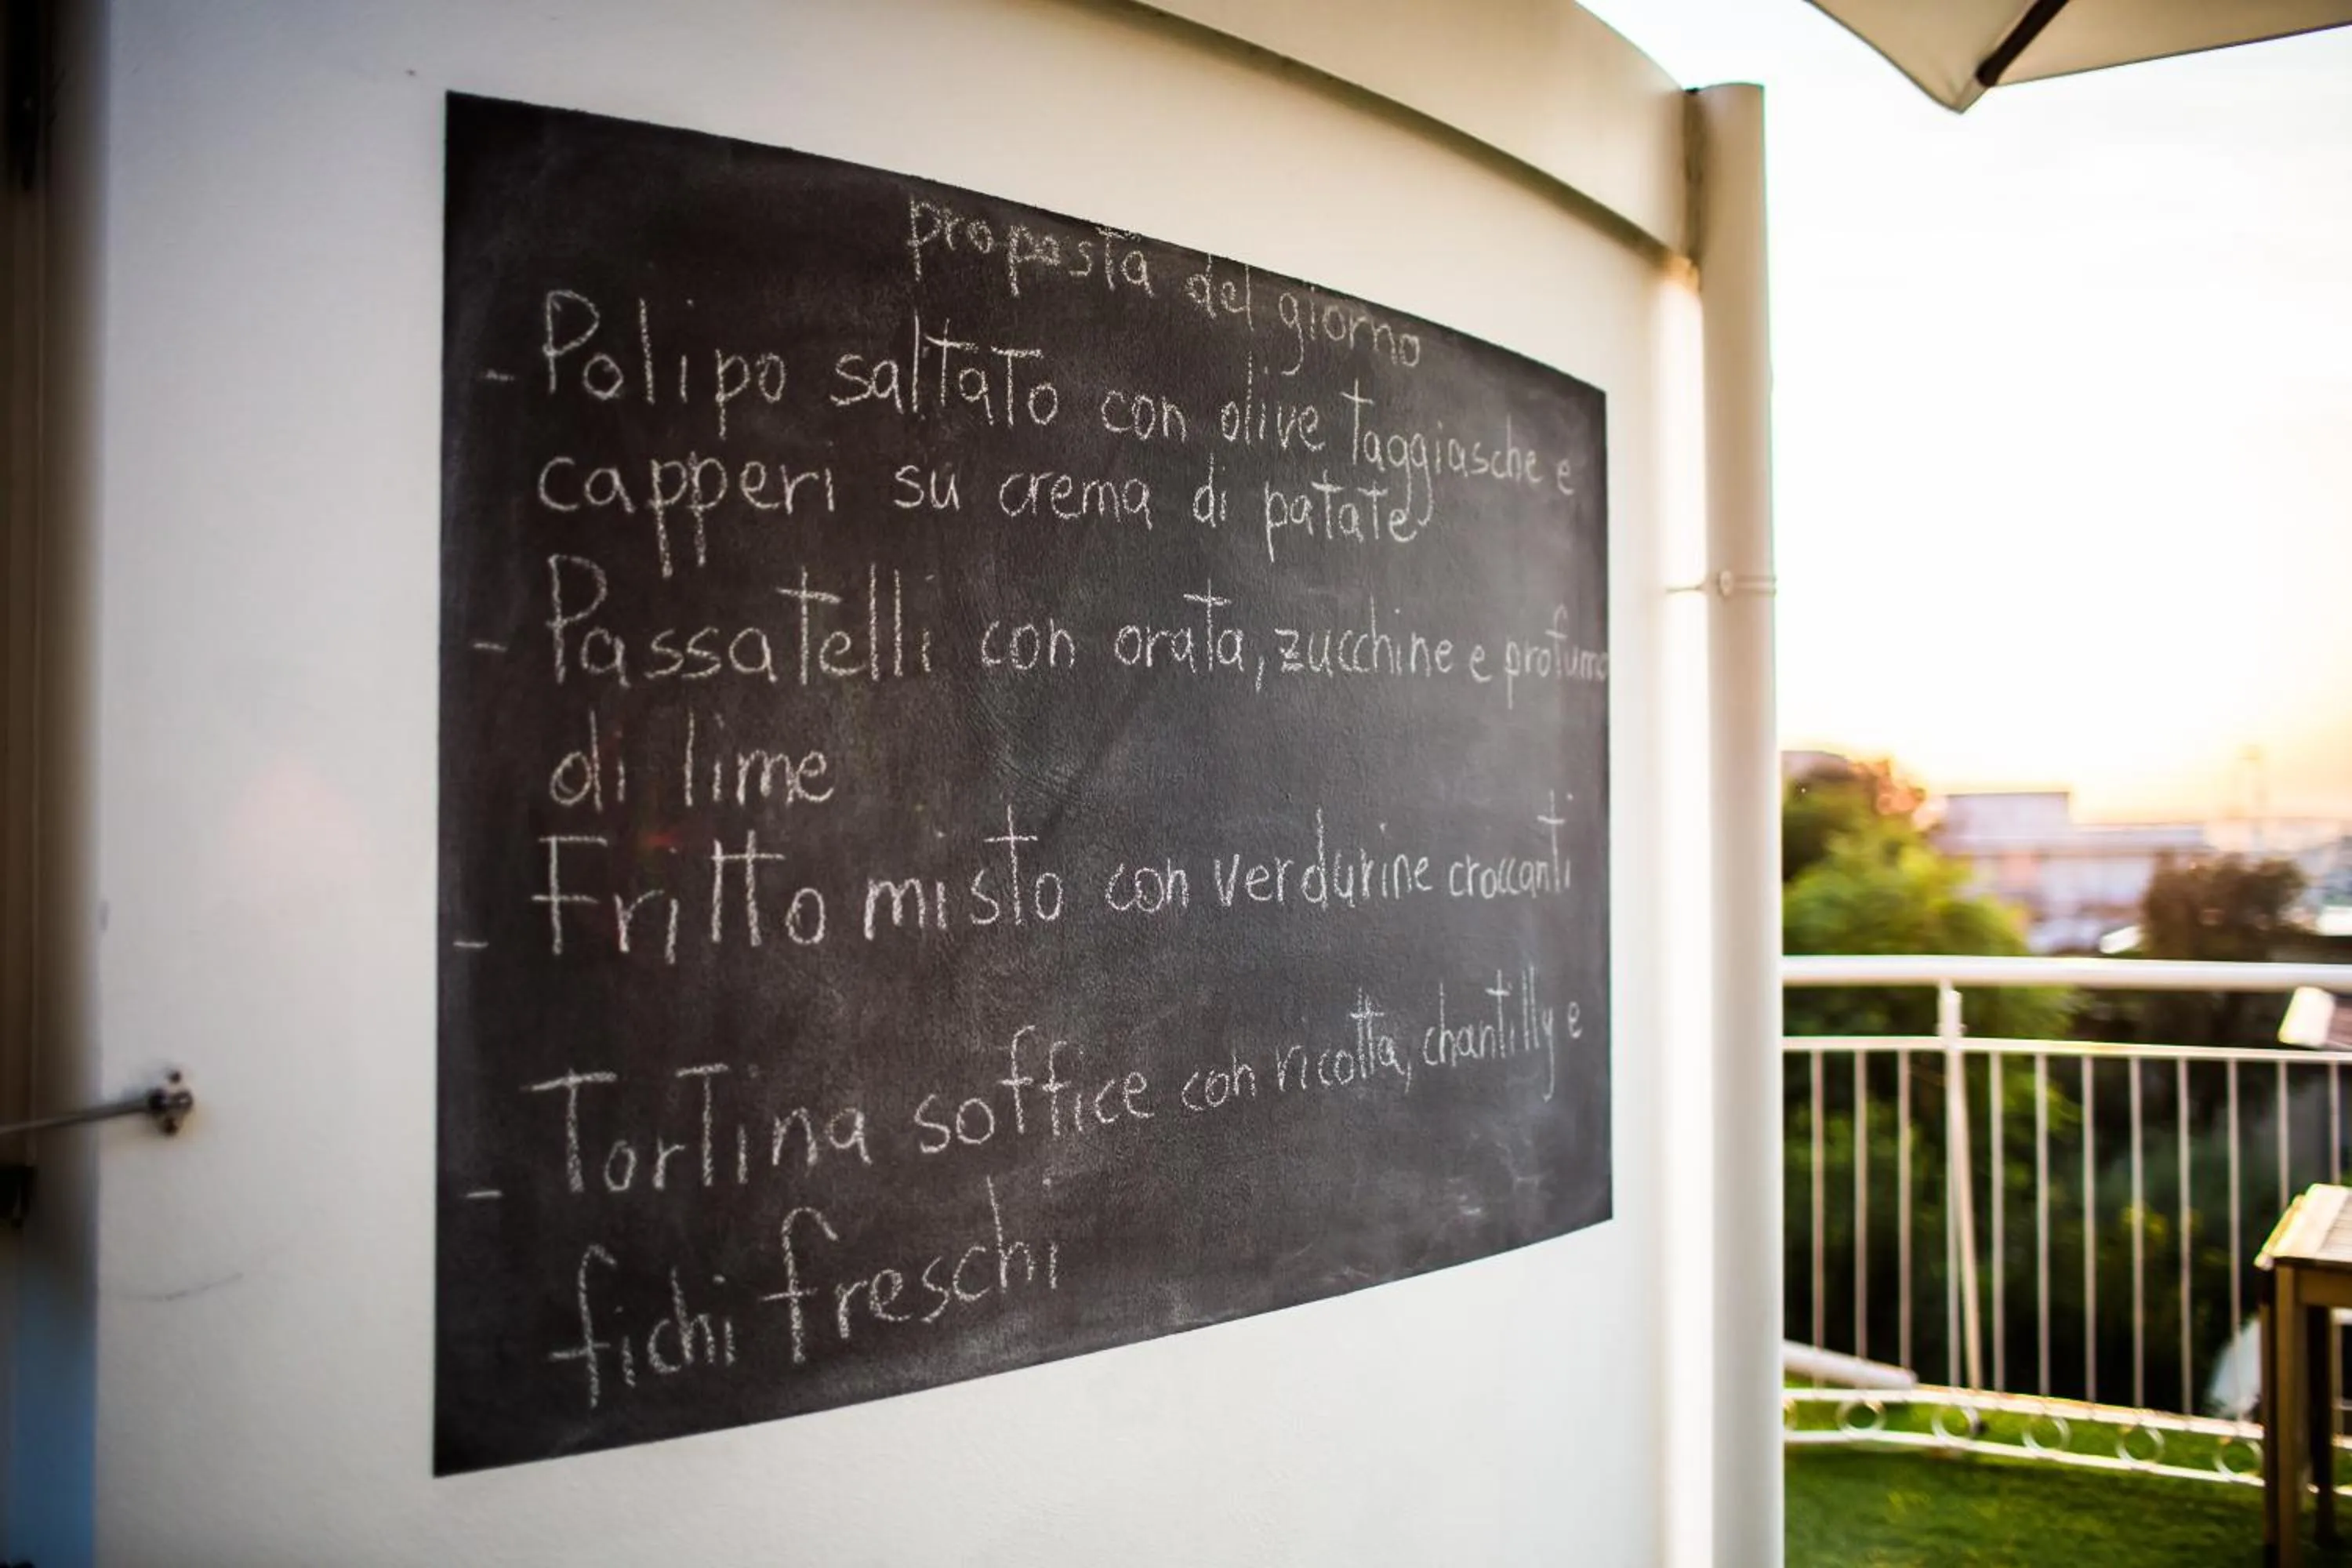 proposta del giorno
- Polipo saltato con olive taggiasche e
capperi su crema di patate
- Passatelli con orata, zucchine e profumo
di lime
- Fritto misto con verdurine croccanti
- Tortina soffice con ricotta, chantilly e
fichi freschi